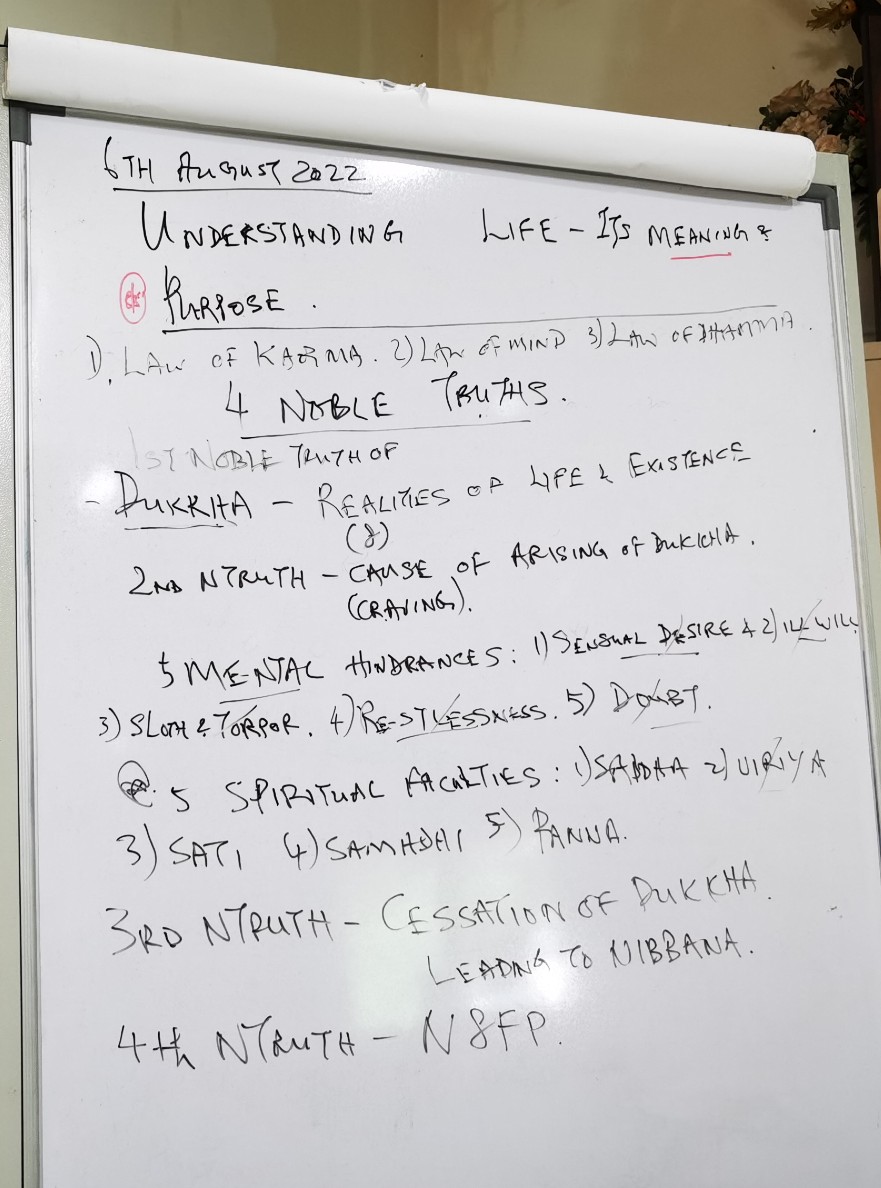 6TH AUGUST 2022
UNDERSTANDING LIFE - ITS MEANING &
PURPOSE.
1). LAW OF KARMA. 2) LAW OF MIND 3) LAW OF DHAMMA.
4 NOBLE TRUTHS.
1ST NOBLE TRUTH OF
- DUKKHA - REALITIES OF LIFE & EXISTENCE
(8)
2ND NTRUTH - CAUSE OF ARISING OF DUKKHA.
(CRAVING).
5 MENTAL HINDRANCES: 1) SENSUAL DESIRE & 2) ILL WILL
3) SLOTH & TORPOR. 4) RESTLESSNESS. 5) DOUBT.
5 SPIRITUAL FACULTIES: 1) SADDHA 2) VIRIYA
3) SATI 4) SAMADHI 5) PANNA.
3RD NTRUTH - CESSATION OF DUKKHA.
LEADING TO NIBBANA.
4th NTRUTH - N8FP.